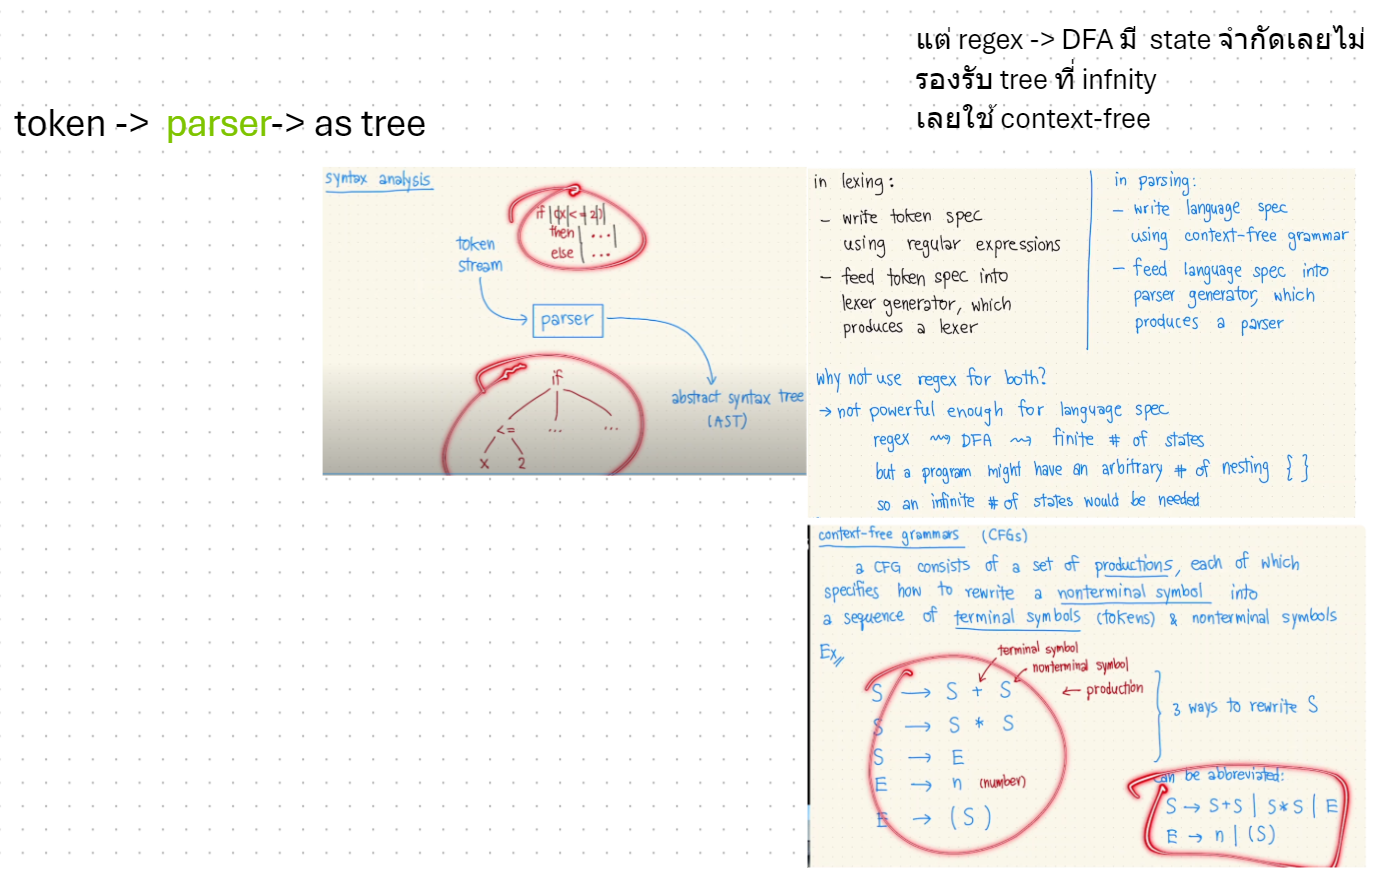 แต่ regex -> DFA มี state จำกัดเลยไม่
รองรับ tree ที่ infnity
เลยใช้ context-free
token -> parser-> as tree
syntax analysis
if |(|x|<=|2|)|
then | ... |
else | ...
token
stream
parser
abstract syntax tree
(AST)
if
<= ... ...
x 2
in lexing:
- write token spec
using regular expressions
- feed token spec into
lexer generator, which
produces a lexer
in parsing:
- write language spec
using context-free grammar
- feed language spec into
parser generator, which
produces a parser
why not use regex for both?
→ not powerful enough for language spec
regex ⇝ DFA ⇝ finite # of states
but a program might have an arbitrary # of nesting { }
so an infinite # of states would be needed
context-free grammars (CFGs)
a CFG consists of a set of productions, each of which
specifies how to rewrite a nonterminal symbol into
a sequence of terminal symbols (tokens) & nonterminal symbols
Ex//
terminal symbol
nonterminal symbol
S → S + S ← production
S → S * S
S → E
E → n (number)
E → (S)
3 ways to rewrite S
can be abbreviated:
S → S+S | S*S | E
E → n | (S)